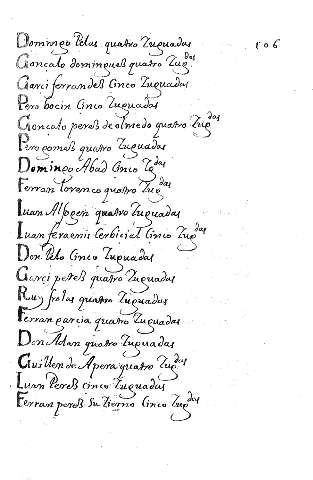 Domingo Pelas quatro Zuguadas
106
Gonçalo domingueß quatro Zugdas
Garci ferrandeß Cinco Zuguadas
Pero bocin Cinco Zuguadas
Gonçalo pereß de olmedo quatro Zugdas
Pero gomeß quatro Zuguadas
Domingo Abad Cinco Zgdas
Ferran lorenco quatro Zugdas
Iuan quatro Zuguadas
Iuan Cinco Zugdas
Don Pelo Cinco Zuguadas
Garçi pereß quatro Zuguadas
Ruy frolas quatro Zuguadas
Ferran garcia quatro Zuguadas
Don Adan quatro Zuguadas
Guillen de Apera quatro Zugdas
Iuan Pereß cinco Zuguadas
Ferran pereß Su Zierno Cinco Zugdas